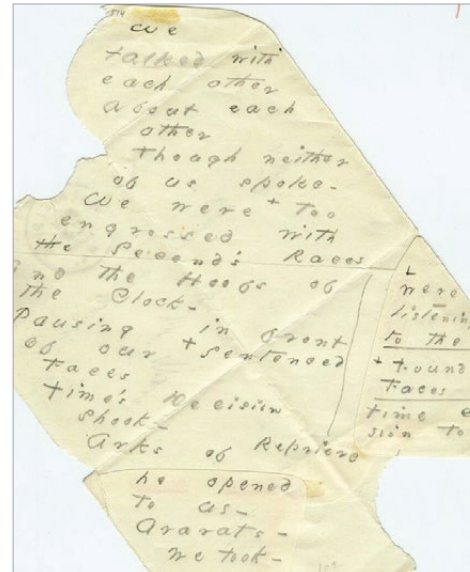 We
talked with
each other
about each
other
though neither
of us spoke-
We were + too
engrossed with
the Second's Races
And the Hoofs of
the Clock-
Pausing in front
of our + sentenced
Faces
Time's Decision
shook-
Arks of Reprieve
he opened
to us-
Ararats-
we took-
were
listenin
to the
+ Found
Faces
time
sion to